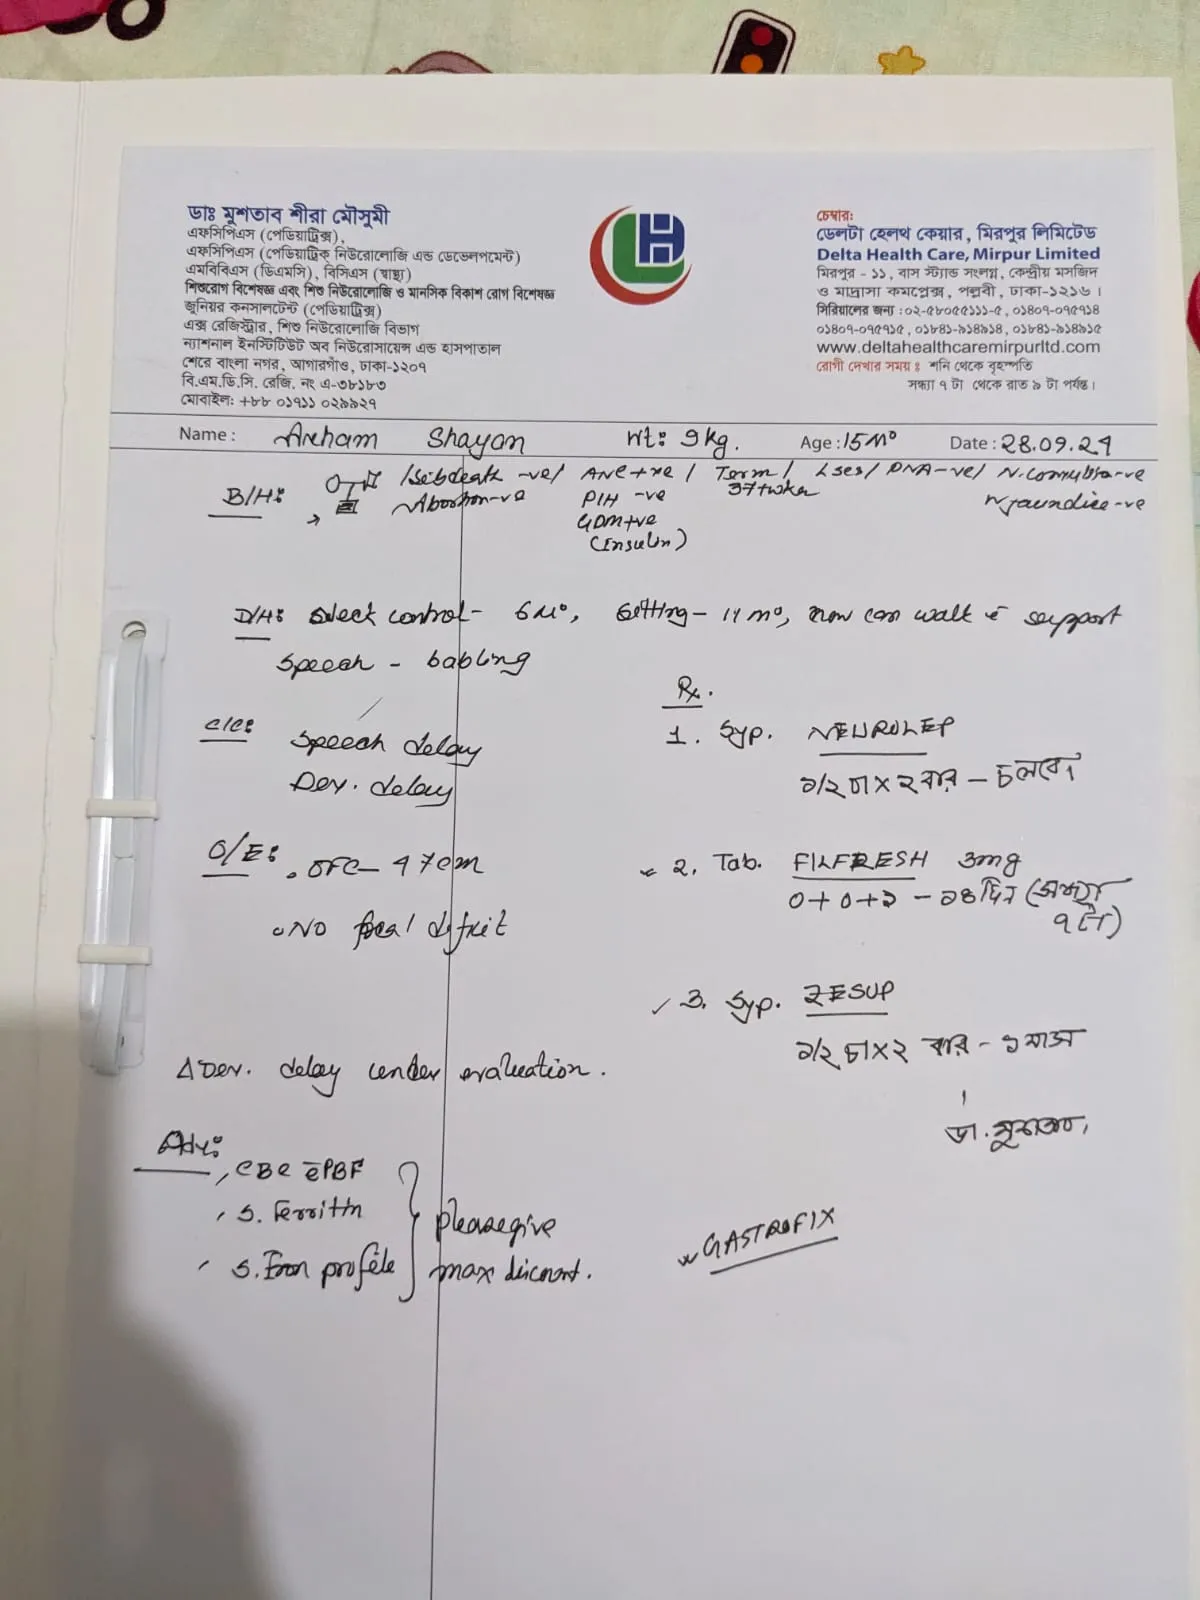 ডাঃ মুশতাব শীরা মৌসুমী
এফসিপিএস (পেডিয়াট্রিক্স),
এফসিপিএস (পেডিয়াট্রিক্ নিউরোলোজি এন্ড ডেভেলপমেন্ট)
এমবিবিএস (ডিএমসি), বিসিএস (স্বাস্থ্য)
শিশুরোগ বিশেষজ্ঞ এবং শিশু নিউরোলোজি ও মানসিক বিকাশ রোগ বিশেষজ্ঞ
জুনিয়র কনসালটেন্ট (পেডিয়াট্রিক্স)
এক্স রেজিস্ট্রার, শিশু নিউরোলোজি বিভাগ
ন্যাশনাল ইনস্টিটিউট অব নিউরোসায়েন্স এন্ড হাসপাতাল
শেরে বাংলা নগর, আগারগাঁও, ঢাকা-১২০৭
বি.এম.ডি.সি. রেজি. নং এ-৩৮১৮৩
মোবাইল: +৮৮ ০১৭১১ ০২৯৯২৭
চেম্বার:
ডেলটা হেলথ কেয়ার, মিরপুর লিমিটেড
Delta Health Care, Mirpur Limited
মিরপুর - ১১, বাস স্ট্যান্ড সংলগ্ন, কেন্দ্রীয় মসজিদ
ও মাদ্রাসা কমপ্লেক্স, পল্লবী, ঢাকা-১২১৬।
সিরিয়ালের জন্য : ০২-৫৮০৫৫১১১-৫, ০১৪০৭-০৭৫৭১৪
০১৪০৭-০৭৫৭১৫, ০১৮৪১-৯১৪৯১৪, ০১৮৪১-৯১৪৯১৫
www.deltahealthcaremirpurltd.com
রোগী দেখার সময় : শনি থেকে বৃহস্পতি
সন্ধ্যা ৭ টা থেকে রাত ৯ টা পর্যন্ত।
Name : Areham Shayan Wt: 9kg. Age : 15 Mo Date : 28.09.24
B/H: /Sibdeath -ve/ ANC +ve / Term / LSCS / PNA -ve/ N. Convulsion -ve
Abortion -ve PIH -ve 37+wks N. jaundice -ve
GDM +ve
(Insulin)
D/H: Neck control - 6 Mo, Sitting - 11 mo, now can walk c̄ support
Speech - babling
C/C: Speech delay
Dev. delay
O/E: . OFC - 47cm
. NO focal deficit
Δ Dev. delay under evaluation.
Adv:
, CBC c̄ PBF
, S. Ferritin
, S. Iron profile
please give
max discount.
Rx.
1. Syp. NEUROLEP
১/২ চা x ২ বার - চলবে।
2. Tab. FILFRESH 3mg
০+০+১ - ১৪ দিন (সন্ধ্যা
৭ টা)
3. Syp. ZESUP
১/২ চা x ২ বার - ১ মাস
GASTROFIX